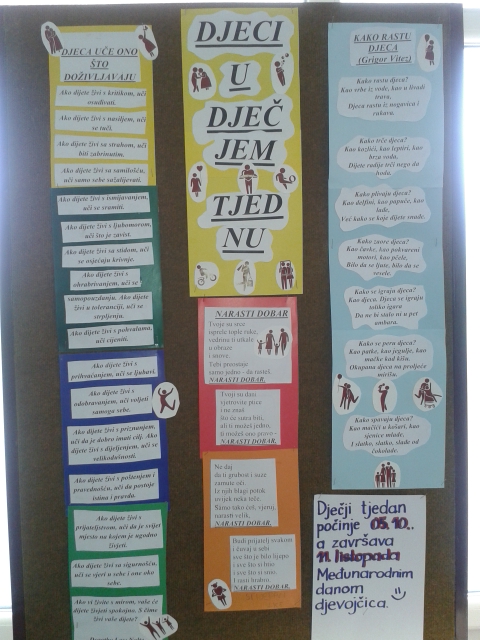 DJECA UČE ONO
ŠTO
DOŽIVLJAVAJU
Ako dijete živi s kritikom, uči
osuđivati.
Ako dijete živi s nasiljem, uči
se tući.
Ako dijete živi sa strahom, uči
biti zabrinutim.
Ako dijete živi sa samilošću,
uči samo sebe sažalijevati.
Ako dijete živi s ismijavanjem,
uči se sramiti.
Ako dijete živi s ljubomorom,
uči što je zavist.
Ako dijete živi sa stidom, uči
se osjećaju krivnje.
Ako dijete živi s
ohrabrivanjem, uči se
samopouzdanju. Ako dijete
živi u toleranciji, uči se
strpljenju.
Ako dijete živi s pohvalama,
uči cijeniti.
Ako dijete živi s
prihvaćanjem, uči se ljubavi.
Ako dijete živi s
odobravanjem, uči voljeti
samoga sebe.
Ako dijete živi s priznanjem,
uči da je dobro imati cilj. Ako
dijete živi s dijeljenjem, uči se
velikodušnosti.
Ako dijete živi s poštenjem i
pravednošću, uči da postoje
istina i pravda.
Ako dijete živi s
prijateljstvom, uči da je svijet
mjesto na kojem je ugodno
živjeti.
Ako dijete živi sa sigurnošću,
uči se vjeri u sebe i one oko
sebe.
Ako vi živite s mirom, vaše će
dijete živjeti spokojno. S čime
živi vaše dijete?
DJECI
U
DJEČ
JEM
TJED
NU
NARASTI DOBAR
Tvoje su suze
uprele tople ruke,
vedrina ti utkale
u obraze
i snove.
Tebi preostaje
samo jedno - da rasteš.
NARASTI DOBAR.
Tvoji su dani
vjetrovite ptice
i ne znaš
što će sutra biti,
ali ti možeš jedno,
ti možeš ono pravo –
NARASTI DOBAR.
Ne daj
da ti grubost i suze
zamute oči.
Iz njih blagi potok
uvijek neka teče.
Samo tako ćeš, vjeruj,
narasti velik.
NARASTI DOBAR.
Budi prijatelj svakom
i čuvaj u sebi
sve što je bilo lijepo
i sve što si htio
i sve što si smio.
I rasti hrabro.
NARASTI DOBAR.
KAKO RASTU
DJECA
(Grigor Vitez)
Kako rastu djeca?
Kao vrbe iz vode, kao u livadi
trava,
Djeca rastu iz nogavica i
rukava.
Kako trče djeca?
Kao kozlići, kao leptiri, kao
brza voda,
Dijete radije trči nego da
hoda.
Kako plivaju djeca?
Kao delfini, kao papuče, kao
lađe,
Već kako se koje dijete snađe.
Kako zuore djeca?
Kao čavke, kao pokvareni
motori, kao pčele.
Bilo da se ljute, bilo da se
vesele.
Kako se igraju djeca?
Kao djeca. Djeca se igraju
toliko sigurn
Da ne bi stalo ni u pet
ambara.
Kako se peru djeca?
Kao patke, kao jegulje, kao
mačke kad kišu.
Okupana djeca na proljeće
mirišu.
Kako spavaju djeca?
Kao mačići u košari, kao
sjenice mlade,
I slatko, slatko, slađe od
čokolade.
Dječji tjedan
počinje 05.10..
a završava
11. listopada
Međunarodnim
danom
djevojčica.